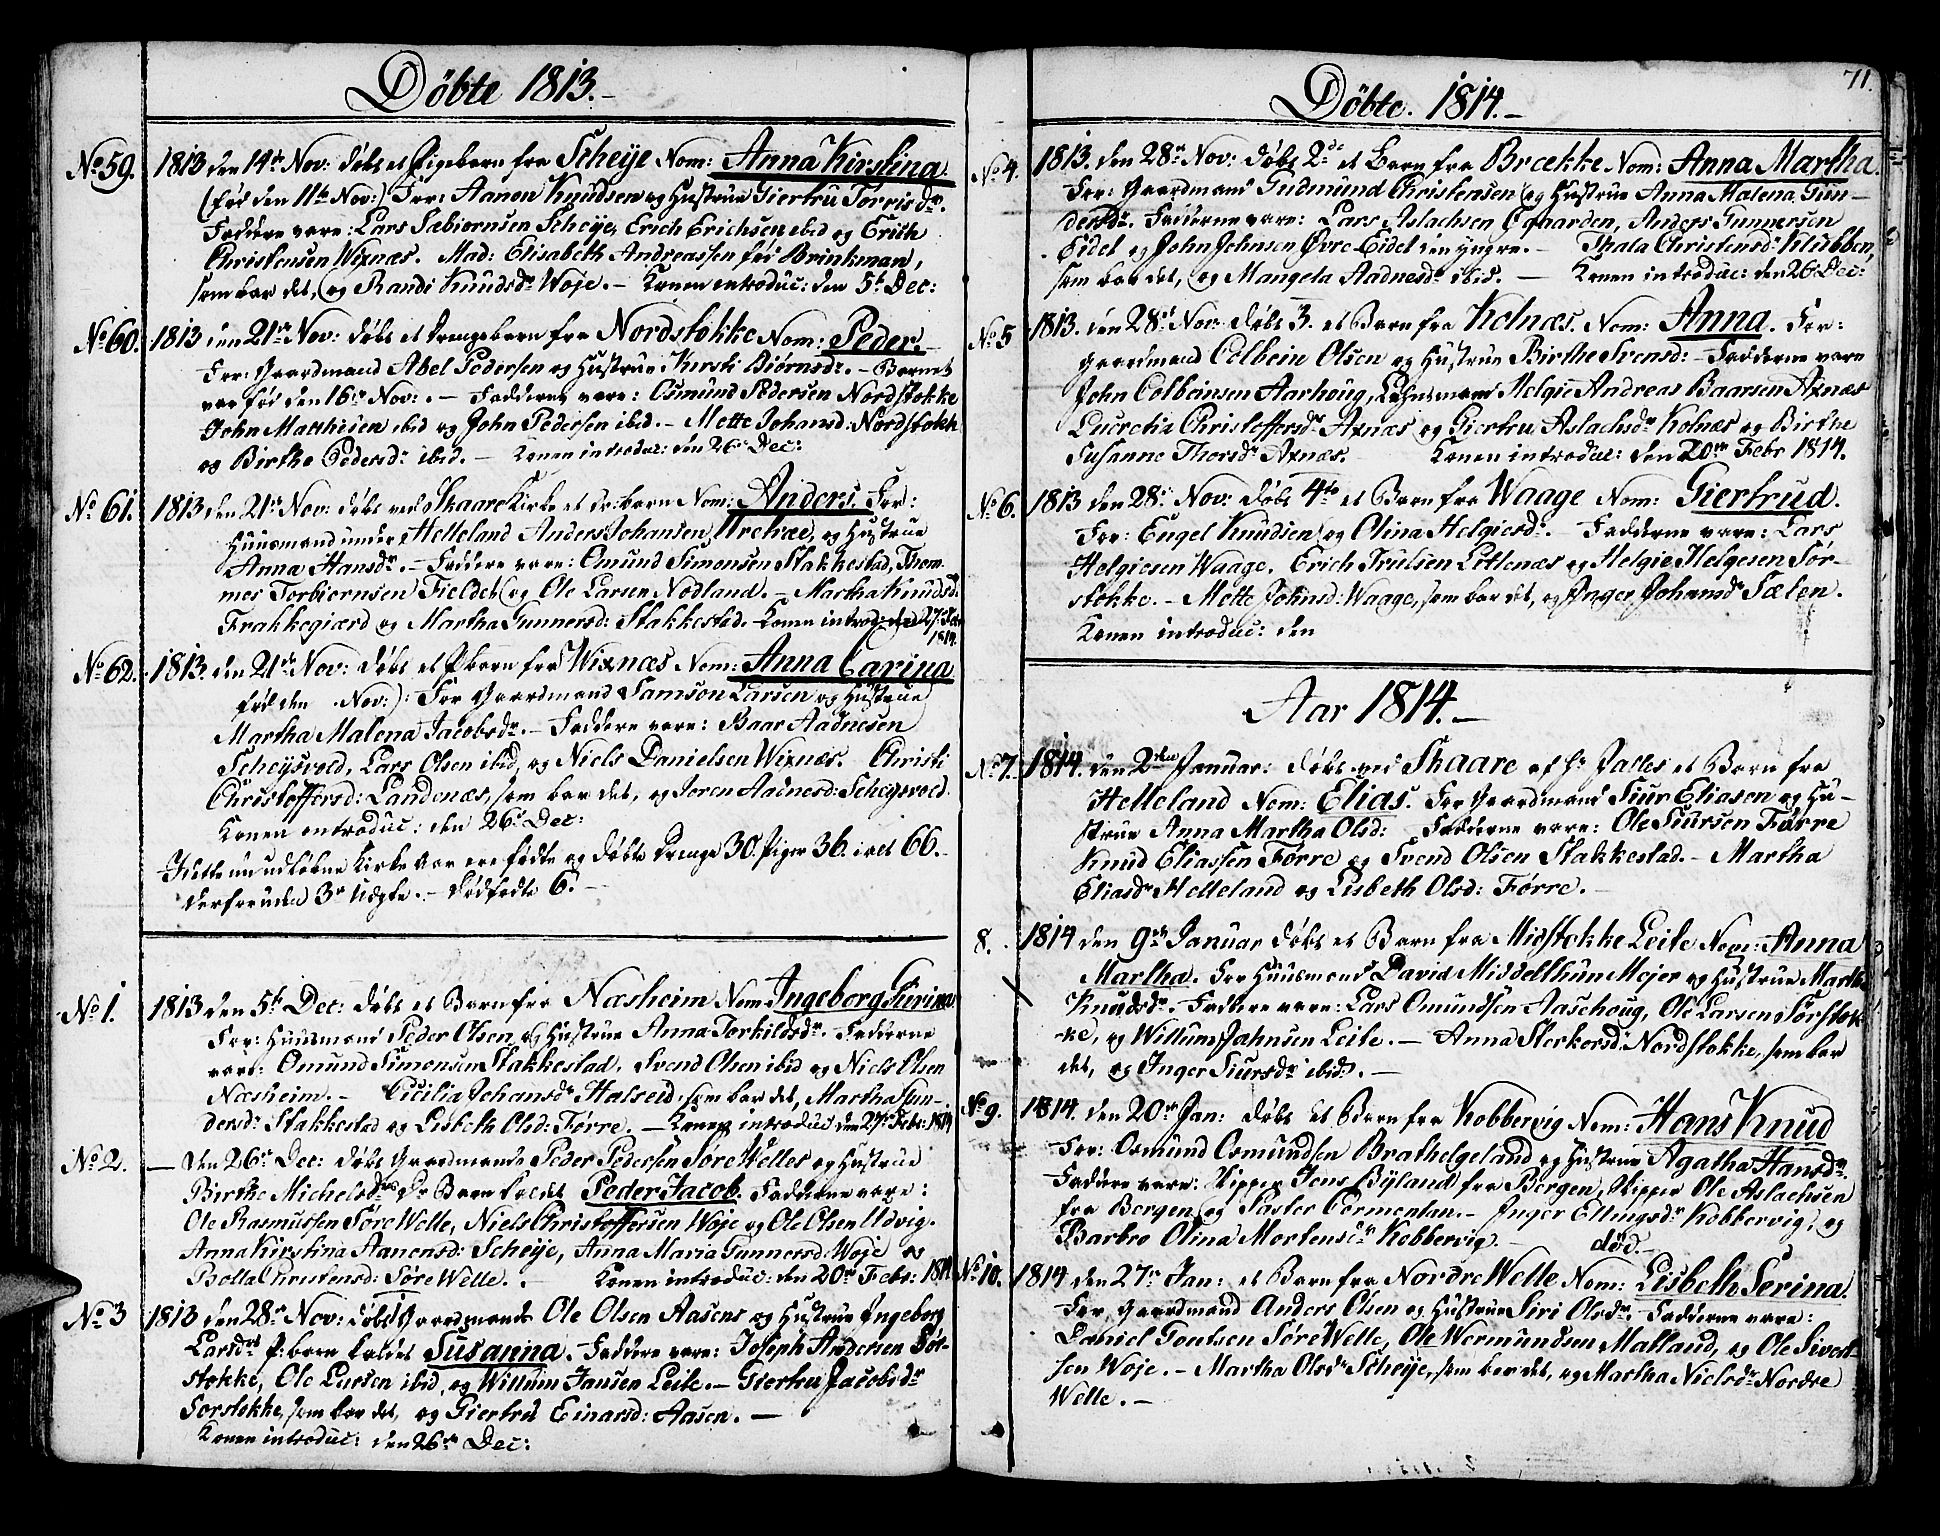 Döbte 1813.-
No 59. 1813 den 14de Nov: döbt et Pigebarn fra Scheije Nom: Anna Kirstina
(föd den 11te Nov:) For: Aanon Knudsen og Hustrue Giertru Torrisdr.
Faddere vare: Lars Sæbiørnsen Scheije, Erich Erichsen ibid og Erich
Christensen Wixnæs. Mad: Elisabeth Andreassen föd Brinkman,
som bar det, og Randi Knudsdr Woje. - Konen introduc: den 5t Dec:
No 60. 1813 den 21de Nov: döbt et drengebarn fra Nordstokke Nom: Peder.
For: Gaardmand Abel Pedersen og Hustrue Kirsti Biørnsdr. - Barnet
var föd den 16de Nov: - Fadderne vare: Osmund Pedersen Nordstokke
John Matthisen ibid og John Pedersen ibid. - Mette Johansd: Nordstokke
og Birthe Pedersdr ibid. - Konen introduc: den 26de Dec:
No 61. 1813 den 21de Nov: döbt ved Skaare Kirke et dr: barn Nom: Anders. For:
Huusmand under Helleland Anders Johansen Wrehæe, og Hustrue
Anna Hansdr. - Faddere vare: Omund Simonsen Stakkestad, Thom-
mes Torbiørnsen Fieldet og Ole Larsen Nodland. - Martha Knudsd:
Frakkegiærd og Martha Gunnersd: Stakkestad. Konen introd: den 27de Febr
1814.
No 62. 1813. den 21de Nov: döbt et P.barn fra Wixnæs Nom: Anna Carina
föd den Nov:) For Gaardmand Samson Larsen og Hustrue
Martha Malena Jacobsdr. - Faddere vare: Baar Aadnesen
Scheijsvold, Lars Olsen ibid, og Niels Danielsen Wixnæs. Christi
Christoffersd: Landenæs, som bar det, og Joren Aadnesd: Scheijsvold
Konen introduc: den 26de Dec:
I dette nu udløbne Kirke Aar ere födte og döbte drenge 30. Piger 36. ialt 66.
derforuden 3de Uægte. - Dödfödte 6. -
No 1. 1813 den 5te Dec: döbt et Barn fra Næsheim Nom: Ingeborg Serina
For: Huusmand Peder Olsen og Hustrue Anna Torkildsdr. Fadderne
vare: Omund Simonsen Stakkestad, Svend Olsen ibid og Niels Olsen
Næsheim. - Cicilia Johansdr Halseid, som bar det, Martha Gun-
dersd: Stakkestad og Lisbeth Olsd: Førre. - Konen introduc den 27de Febr: 1814
No 2. - den 26de Dec: döbt Gaardmands Peder Pedersen Søre Welles og Hustrue
Birthe Michelsdrs Dr Barn kaldet Peder Jacob. Fadderne vare:
Ole Rasmussen Søre Welle, Niels Christoffersen Woje og Ole Olsen Udvig.
Anna Kirstina Aanensd: Scheije, Anna Maria Gunnersd: Woje og
Bolla Christensd: Søre Welle. - Konen introduc: den 20de Febr: 1814
No 3 1813 den 28de Nov: döbt Gaardmands Ole Olsen Aasens og Hustrue Ingeborg
Larsdrs P: barn kaldet Susanna. Faddere vare: Joseph Andersen Sør-
stokke, Ole Larsen ibid, og Willum Jansen Leite. - Giertru Jacobsdr
Sørstokke, som bar det, og Giertru Einarsd: Aasen. -
Konen introduc: den 26de Dec:
71.
Döbte. 1814.-
No 4. 1813. den 28de Nov: döbt 2de et Barn fra Brække Nom: Anna Martha.
For: Gaardmand Gudmund Christensen og Hustrue Anna Malena Gun-
dersdr. Fadderne vare: Lars Aslachsen Egaarden, Anders Gunnersen
Eidet og John Johnsen Øvre Eidet den Yngre. - Thala Christensd: Klubben,
som bar det, og Mangela Aadnesdr ibid. - Konen introduc: den 26 Dec:
No 5 1813. den 28de Nov: döbt 3. et Barn fra Kolnæs. Nom: Anna. For:
Gaardmand Colbein Olsen og Hustrue Birthe Svensd: - Fadderne vare
John Colbeinsen Aarhoug, Lehnsmand Helgie Andreas Baarsen Axnæs
Lucretia Christoffersdr Axnæs og Giertru Aslachsdr Kolnæs og Birthe
Susanne Thorsdr Axnæs. Konen introduc: den 20de Febr 1814.
No 6. 1813 den 28de Nov: döbt 4de et Barn fra Waage Nom: Giertrud.
For: Engel Knudsen og Olina Helgiesdr. - Fadderne vare: Lars
Helgiesen Waage, Erich Trulsen Litlenæs og Helgie Helgesen Sør-
stokke. - Mette Johnsd: Waage, som bar det, og Inger Johansdr Sælen.
Konen introduc: den
Aar 1814.-
No 7. 1814. den 2den Januar: döbt ved Skaare af Hr Jalles et Barn fra
Helleland Nom: Elias. For Gaardmand Siur Eliasen og Hu-
strue Anna Martha Olsd: Fadderne vare: Ole Siursen Førre
Knud Eliassen Førre og Svend Olsen Stakkestad. - Martha
Eliasdr Helleland og Lisbeth Olsd: Førre. -
8. 1814 den 9de Januar döbt et Barn fra Midstokke Leite Nom: Anna
Martha. For Huusmand David Middelthun Mejer og Hustrue Martha
Knudsdr. Faddere vare: Lars Omundsen Aasehoug, Ole Larsen Sørstok-
ke, og Willum Jahnsen Leite. - Anna Sterkersd: Nordstokke, som bar
det, og Inger Siursdr ibid. -
No 9. 1814. den 20de Jan: döbt et Barn fra Kobbervig Nom: Hans Knud
For: Osmund Osmundsen Brathelgeland og Hustrue Agatha Hansdr
Faddere vare: Skipper Jens Byland fra Bergen, Skipper Ole Aslachsen
fra Bergen og Paster Cormentan. - Inger Ellingsdr Kobbervig, og
Barbro Olina Mortensdr Kobbervig. - död.-
No 10. 1814 den 27de Jan: et Barn fra Nordre Welle Nom: Lisbeth Serina.
For Gaardmand Anders Olsen og Hustrue Siri Olsdr. Fadderne vare:
Daniel Toutsen Søre Welle, Ole Wermundsen Matland, og Ole Sivert-
sen Woje. - Martha Olsdr Scheije, som bar det, og Martha Nielsdr Nordre
Welle. -